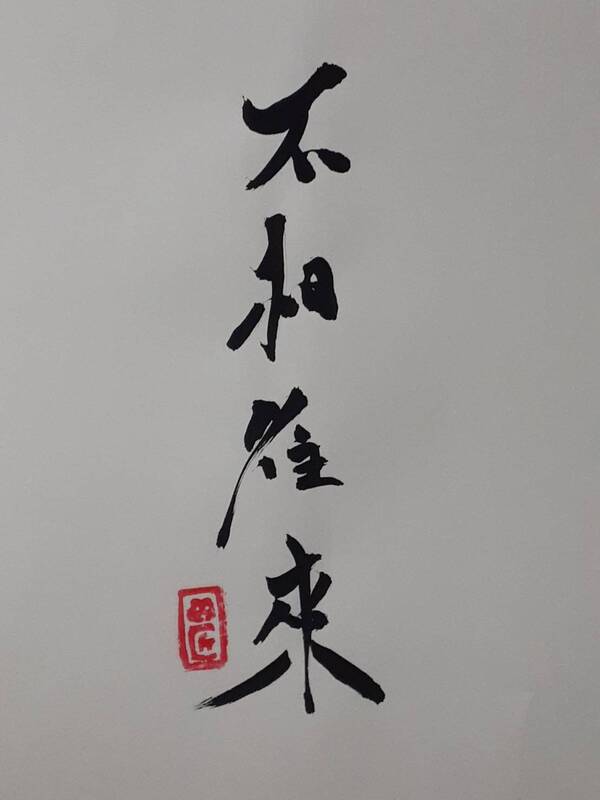 不相往來